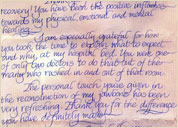 recovery. You have been the positive influence
towards my physical, emotional and medical
healing.
I am especially grateful for how
you took the time to explain what to expect
and why, at my months best. You were one
of only two doctors to do that out of the
many who rushed in and out of that room.
The personal touch you've given in
the reconstruction of my has been
very refreshing. Thank you for the difference
you have definitely made!